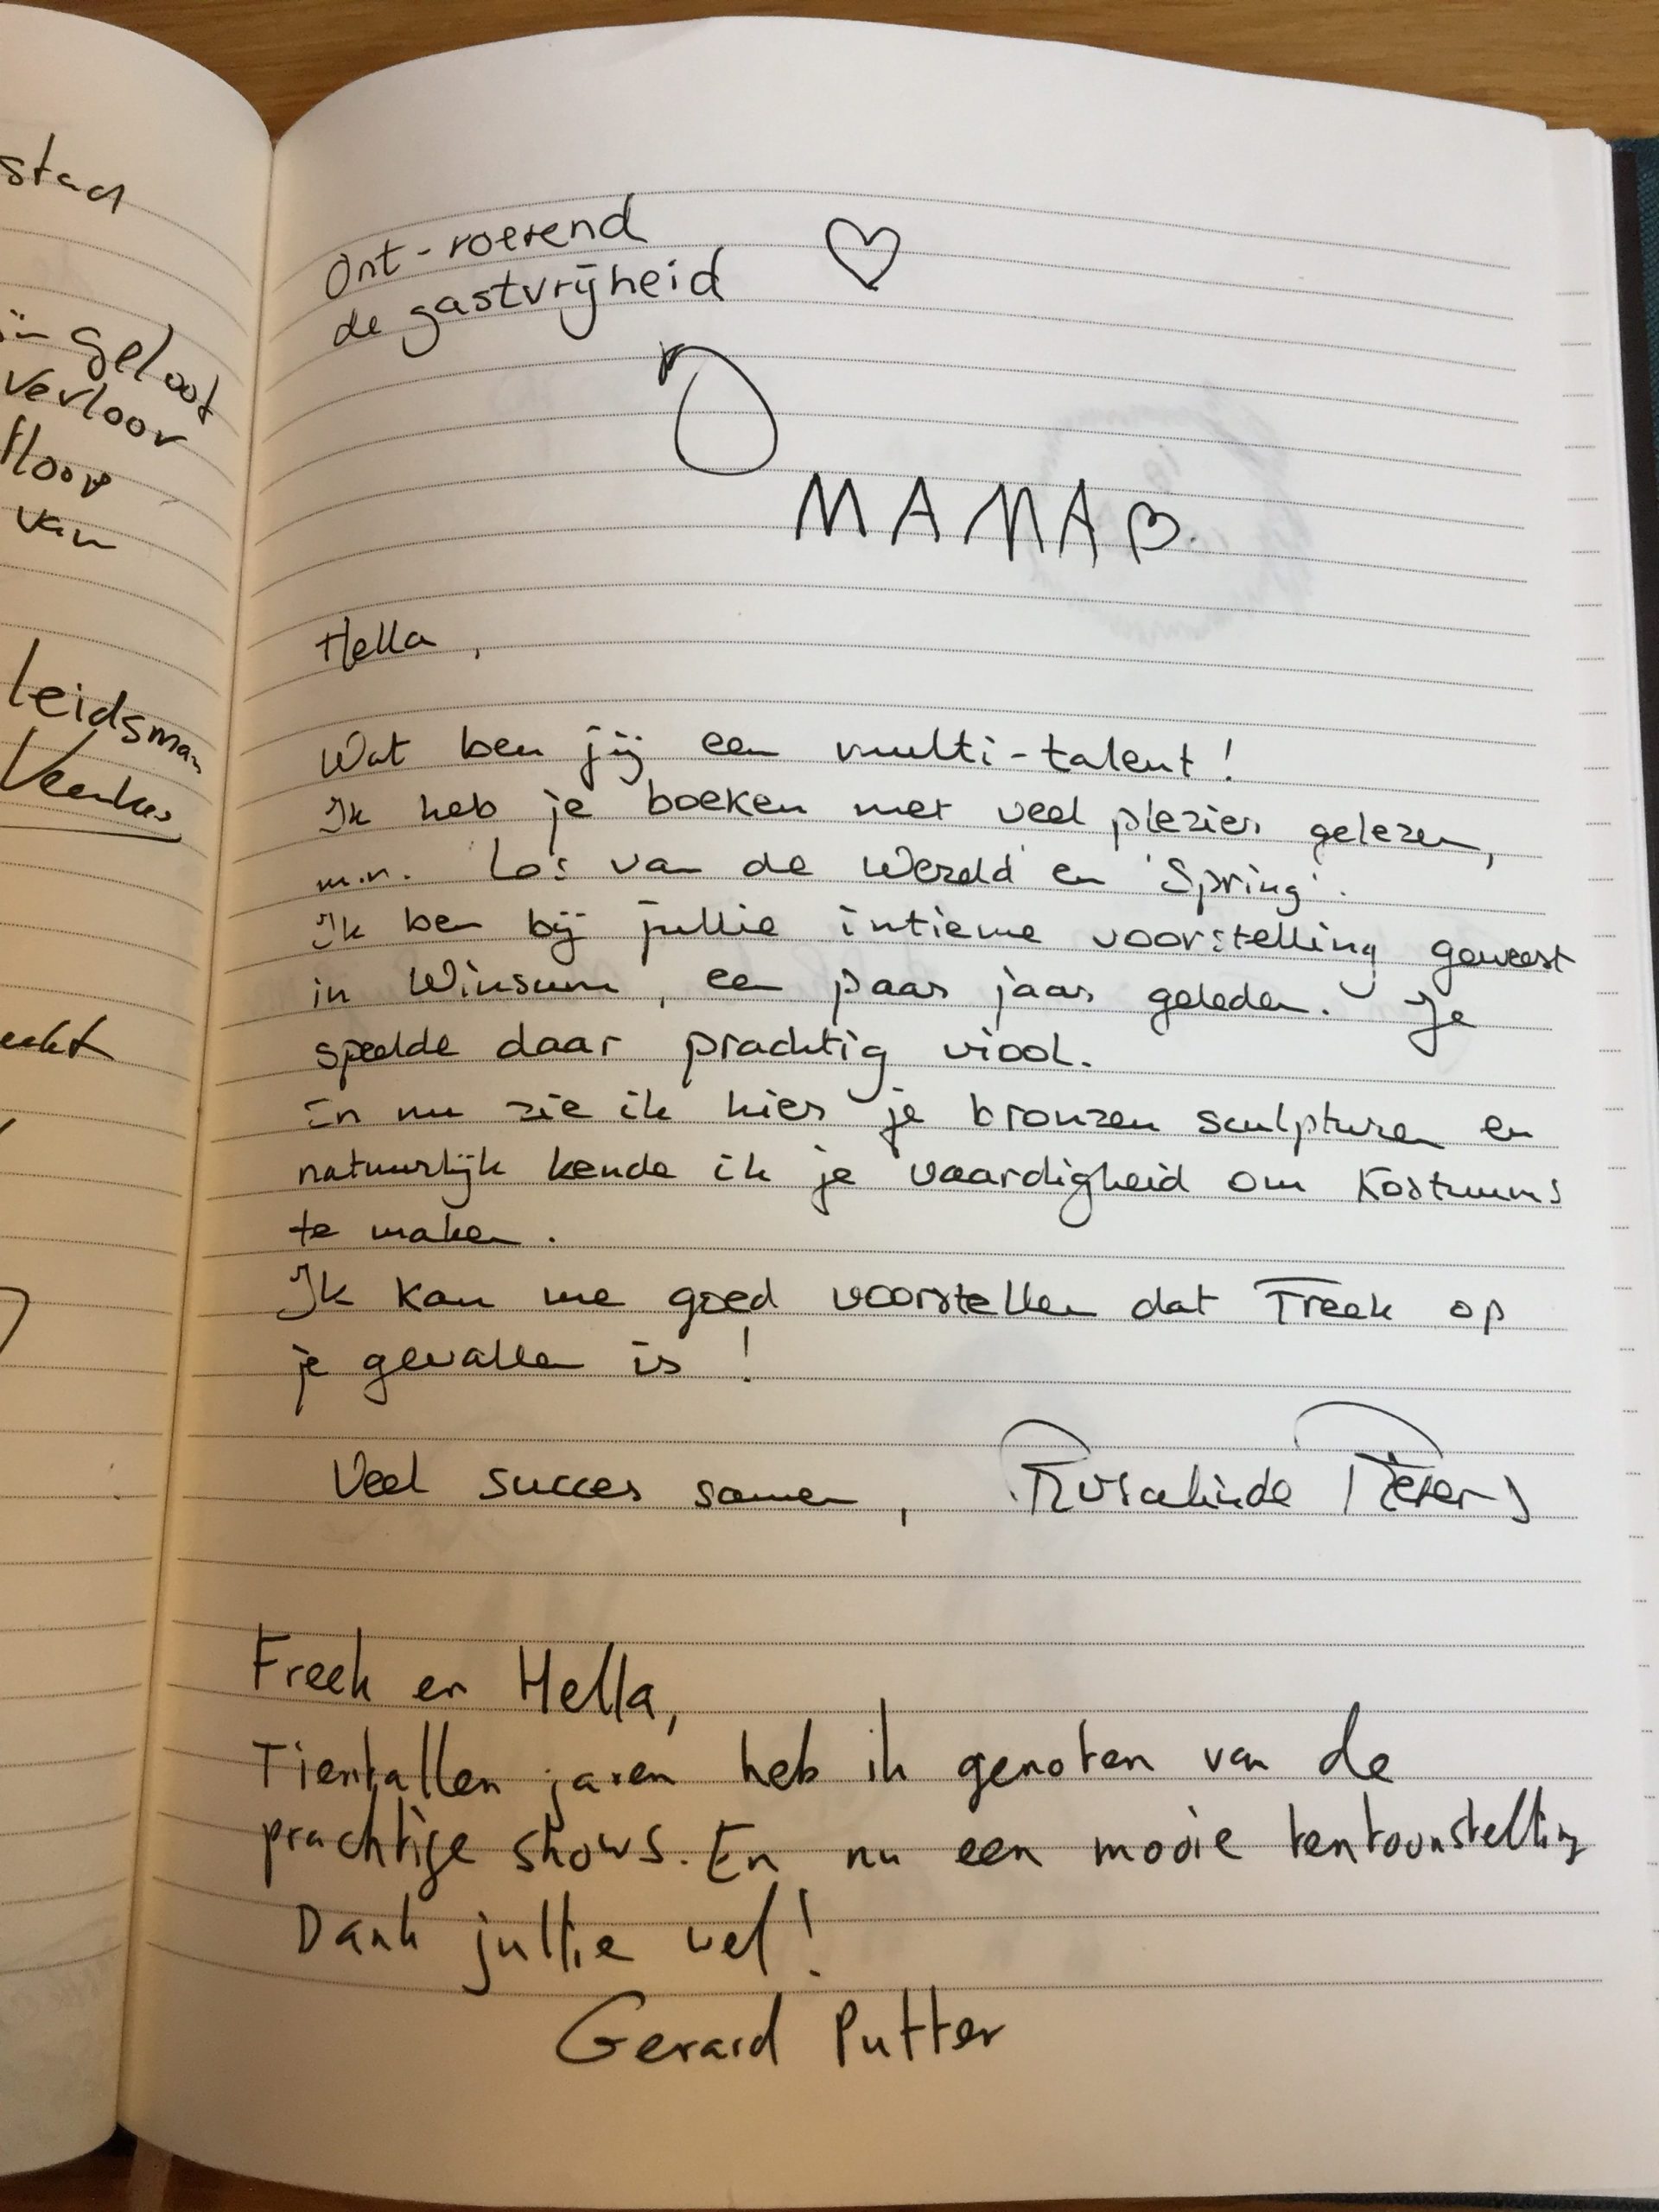 stad
geloot
verloor
floor
van
leidsman
Veenker
Ont-roerend
de gastvrijheid
MAMA
Hella,
Wat ben jij een multi-talent!
Ik heb je boeken met veel plezier gelezen,
m.n. 'Los van de Wereld' en 'Spring'.
Ik ben bij jullie intieme voorstelling geweest
in Winsum, een paar jaar geleden. Je
speelde daar prachtig viool.
En nu zie ik hier je bronzen sculpturen en
natuurlijk kende ik je vaardigheid om Kostuums
te maken.
Ik kan me goed voorstellen dat Freek op
je gevallen is!
Veel succes samen, Rosalinde Pieters
Freek en Hella,
Tientallen jaren heb ik genoten van de
prachtige shows. En nu een mooie tentoonstelling
Dank jullie wel!
Gerard Putter